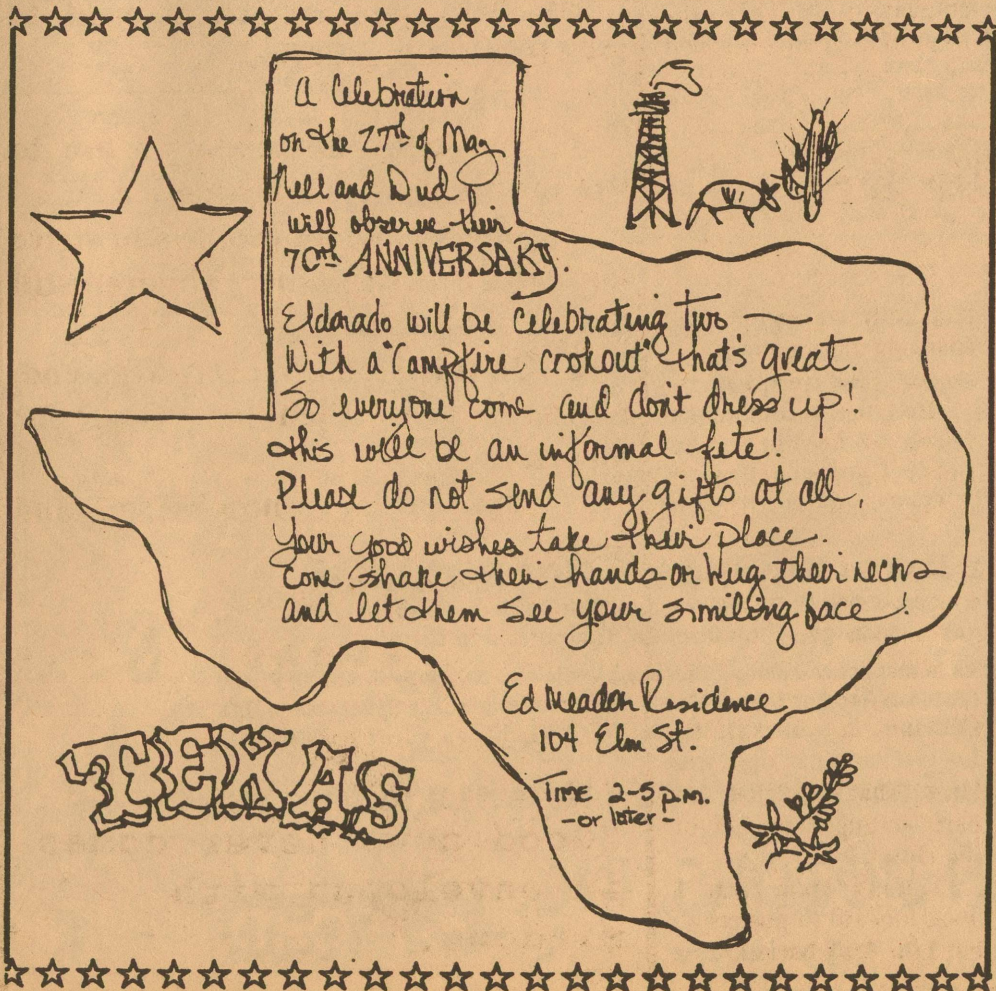 A Celebration
on the 27th of May
Nell and Dud
will observe their
70th ANNIVERSARY.
Eldorado will be celebrating too —
With a "Campfire cookout" that's great.
So everyone come and don't dress up!
this will be an informal fete!
Please do not send any gifts at all,
Your good wishes take their place.
Come shake their hands or hug their necks
and let them see your smiling face!
Ed Meador Residence
104 Elm St.
TIME 2-5 p.m.
-or later-
TEXAS